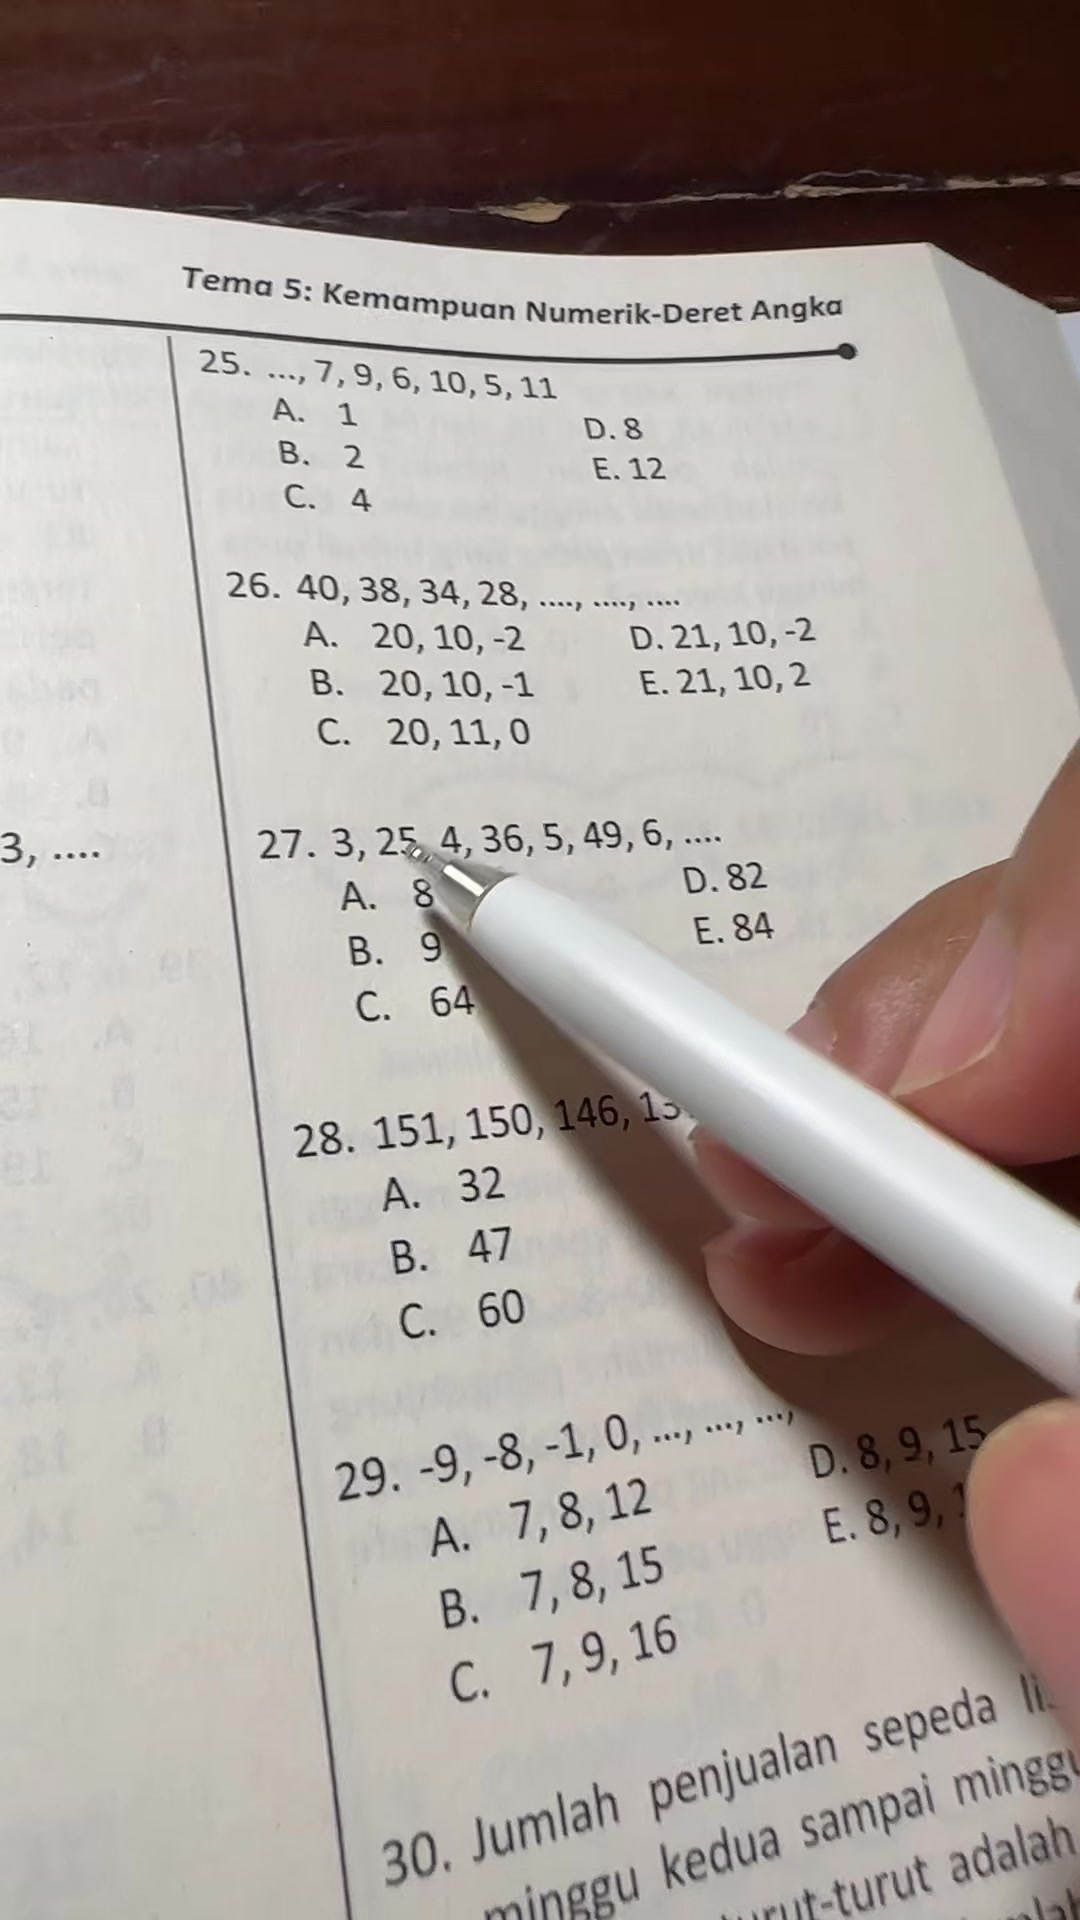 Tema 5: Kemampuan Numerik-Deret Angka
3, ....
25. ..., 7, 9, 6, 10, 5, 11
A. 1
D. 8
B. 2
E. 12
C. 4
26. 40, 38, 34, 28, ...., ...., ....
A. 20, 10, -2
D. 21, 10, -2
B. 20, 10, -1
E. 21, 10, 2
C. 20, 11, 0
27. 3, 25, 4, 36, 5, 49, 6, ....
A. 8
D. 82
B. 9
E. 84
C. 64
28. 151, 150, 146,
A. 32
B. 47
C. 60
29. -9, -8, -1, 0, ..., ..., ...,
A. 7, 8, 12
D. 8, 9, 15
B. 7, 8, 15
E. 8, 9,
C. 7, 9, 16
30. Jumlah penjualan sepeda
minggu kedua sampai
adalah